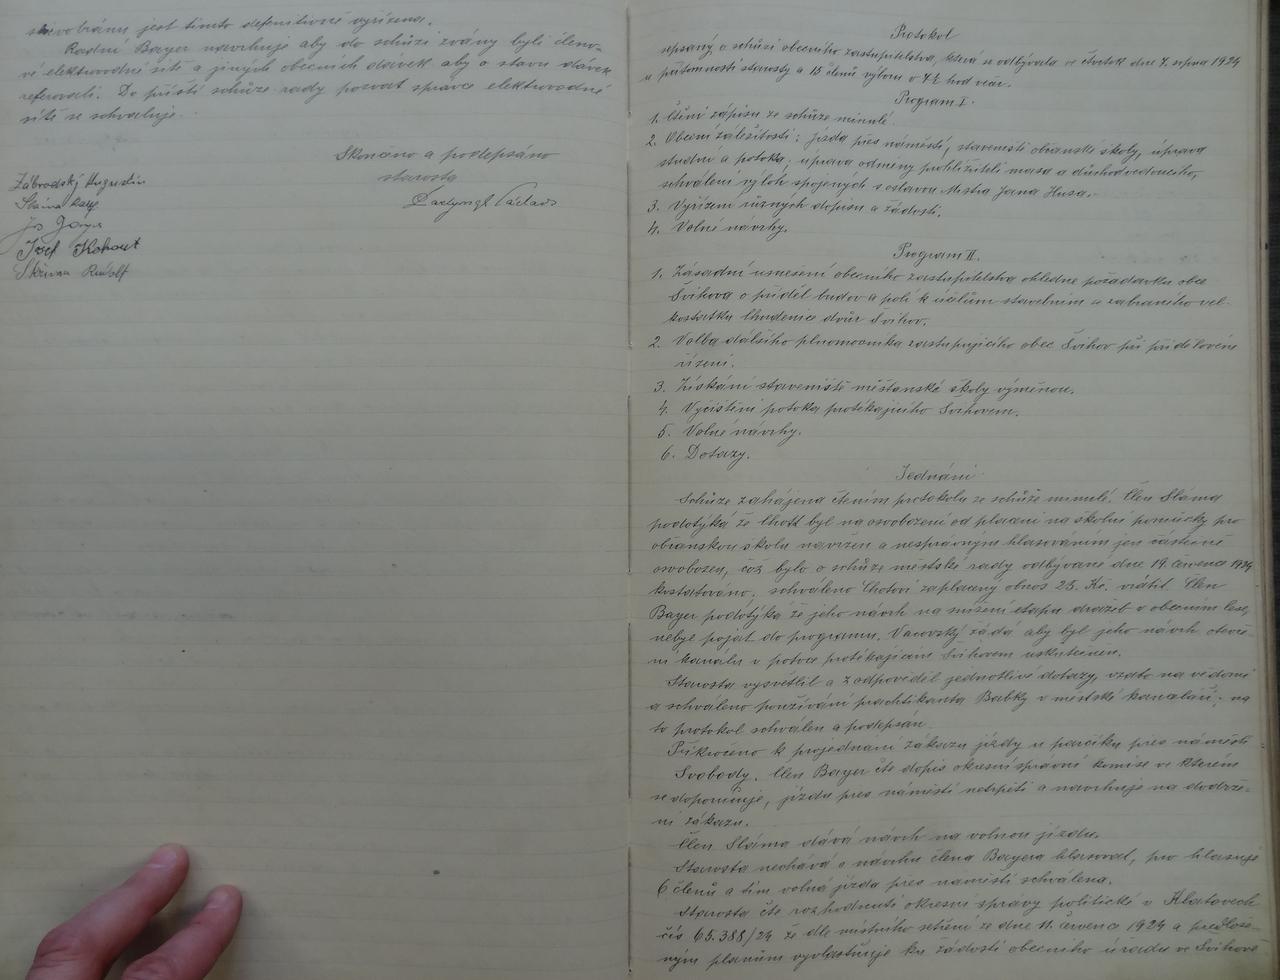 jest tímto defenitivně vyřízena.
Radní Bayer navrhuje aby do schůzí zvány byli členo-
vé elektrovodné sítě a jiných obecních dávek aby o stavu dávek
referovali. Do příští schůze rady pozvat správce elektrovodné
sítě se schvaluje.
Skončeno a podepsáno
starosta
Zábrodský Augustin
Josef Kohout
Skřivan Rudolf
Protokol
sepsaný o schůzi obecního zastupitelstva, která se odbývala ve čtvrtek dne 7. srpna 1924
u přítomnosti starosty a 15 členů výboru o hod večer.
Program I.
1. Čtení zápisu ze schůze minulé.
2. Obecní záležitosti: jízda přes náměstí, staveniště občanské školy, úprava
studní a potoka; úprava odměny prohlížiteli masa a důchodvedoucího,
schválení výloh spojených s oslavou Mistra Jana Husa.
3. Vyřízení různých dopisů a žádostí.
4. Volné návrhy.
Program II.
1. Zásadní usnesení obecního zastupitelstva ohledně požadavku obce
Švihova o příděl budov a polí k účelům stavebním ze zabraného vel-
kostatku Chudenice dvůr Švihov.
2. Volba dalšího plnomocníka zastupujícího obec Švihov při přídělovém
řízení.
3. Získání staveniště měšťanské školy výměnou.
4. Vyčištění potoka protékajícího Švihovem.
5. Volné návrhy.
6. Dotazy.
Jednání
Schůze zahájena čtením protokolu ze schůze minulé. Člen Sláma
podotýká že Chott byl na osvobození od placení na školní pomůcky pro
občanskou školu navržen a nesprávným hlasováním jen částečně
osvobozen, což bylo o schůze městské rady odbývané dne 19. července 1924
konstatováno, schváleno Chotovi zaplacený obnos 25. Kč. vrátit. Člen
Bayer podotýká že jeho návrh na snížení etapu dražeb v obecním lese,
nebyl pojat do programu. Vacovský žádá aby byl jeho návrh otevře-
ní kanálu v potoce protékajícím Švihovem uskutečněn.
Starosta vysvětlil a zodpověděl jednotlivé dotazy, vzato na vědomí
a schváleno používání praktikanta Babky v městské kanceláři; na
to protokol schválen a podepsán.
Přikročeno k projednání zákazu jízdy u parčíku přes náměstí
Svobody. Člen Bayer čte dopis okresní správní komise ve kterém
se doporučuje, jízdu přes náměstí netrpěti a navrhuje na dodrže-
ní zákazu.
Člen Sláma dává návrh na volnou jízdu.
Starosta nechává o návrhu člena Bayera hlasovat, pro hlasuje
6 členů a tím volná jízda přes náměstí schválena.
Starosta čte rozhodnutí okresní správy politické v Klatovech
čís 65.388/24 že dle místního šetření ze dne 11. července 1924 a předlože-
ným plánům vyvlastňuje ku žádosti obecního úřadu ve Švihově